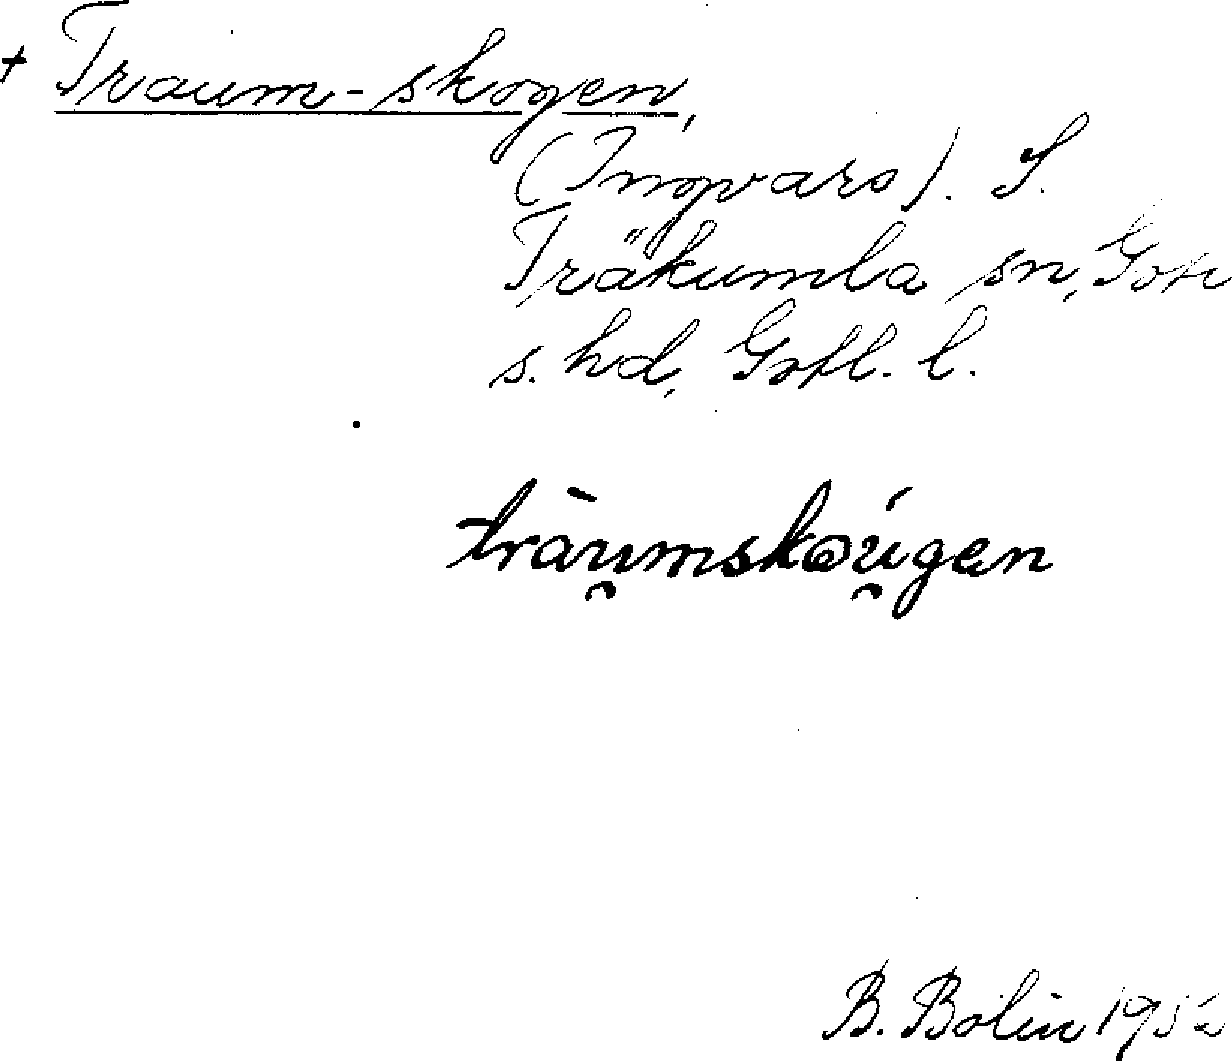 + Traum-skogen,
(Ingvars). S.
Träkumla sn, Gotl
s. hd, Gotl. l.
tràu̯mskǿu̯gen
B. Bolin 1952